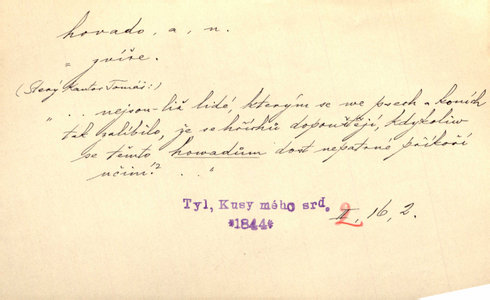 hovado, a, n.
„ zvíře.
(Starý kantor Tomáš:)
„ . . nejsou-liž lidé, kterým se we psech a koních
tak zalíbilo, že se hříchů dopouštějí, kdykoliw
se těmto howadům dost nepatrné příkoří
učiní? . . “
Tyl, Kusy mého srd. II, 16, 2.
*1844* 2